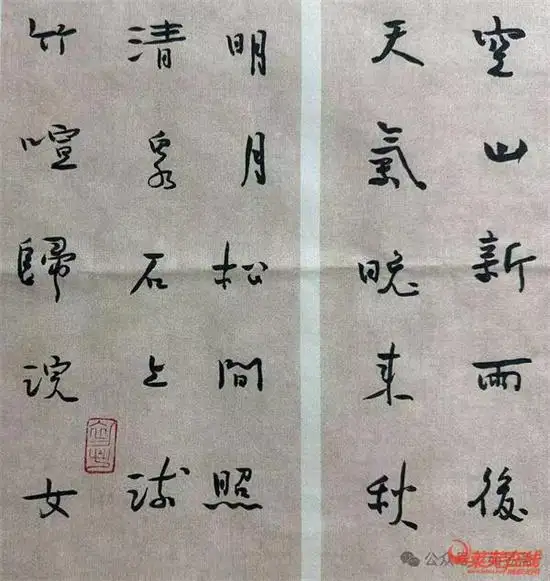 空山新雨後
天氣晚来秋
明月松間照
清泉石上流
竹喧歸浣女
公众号
莱芜在线